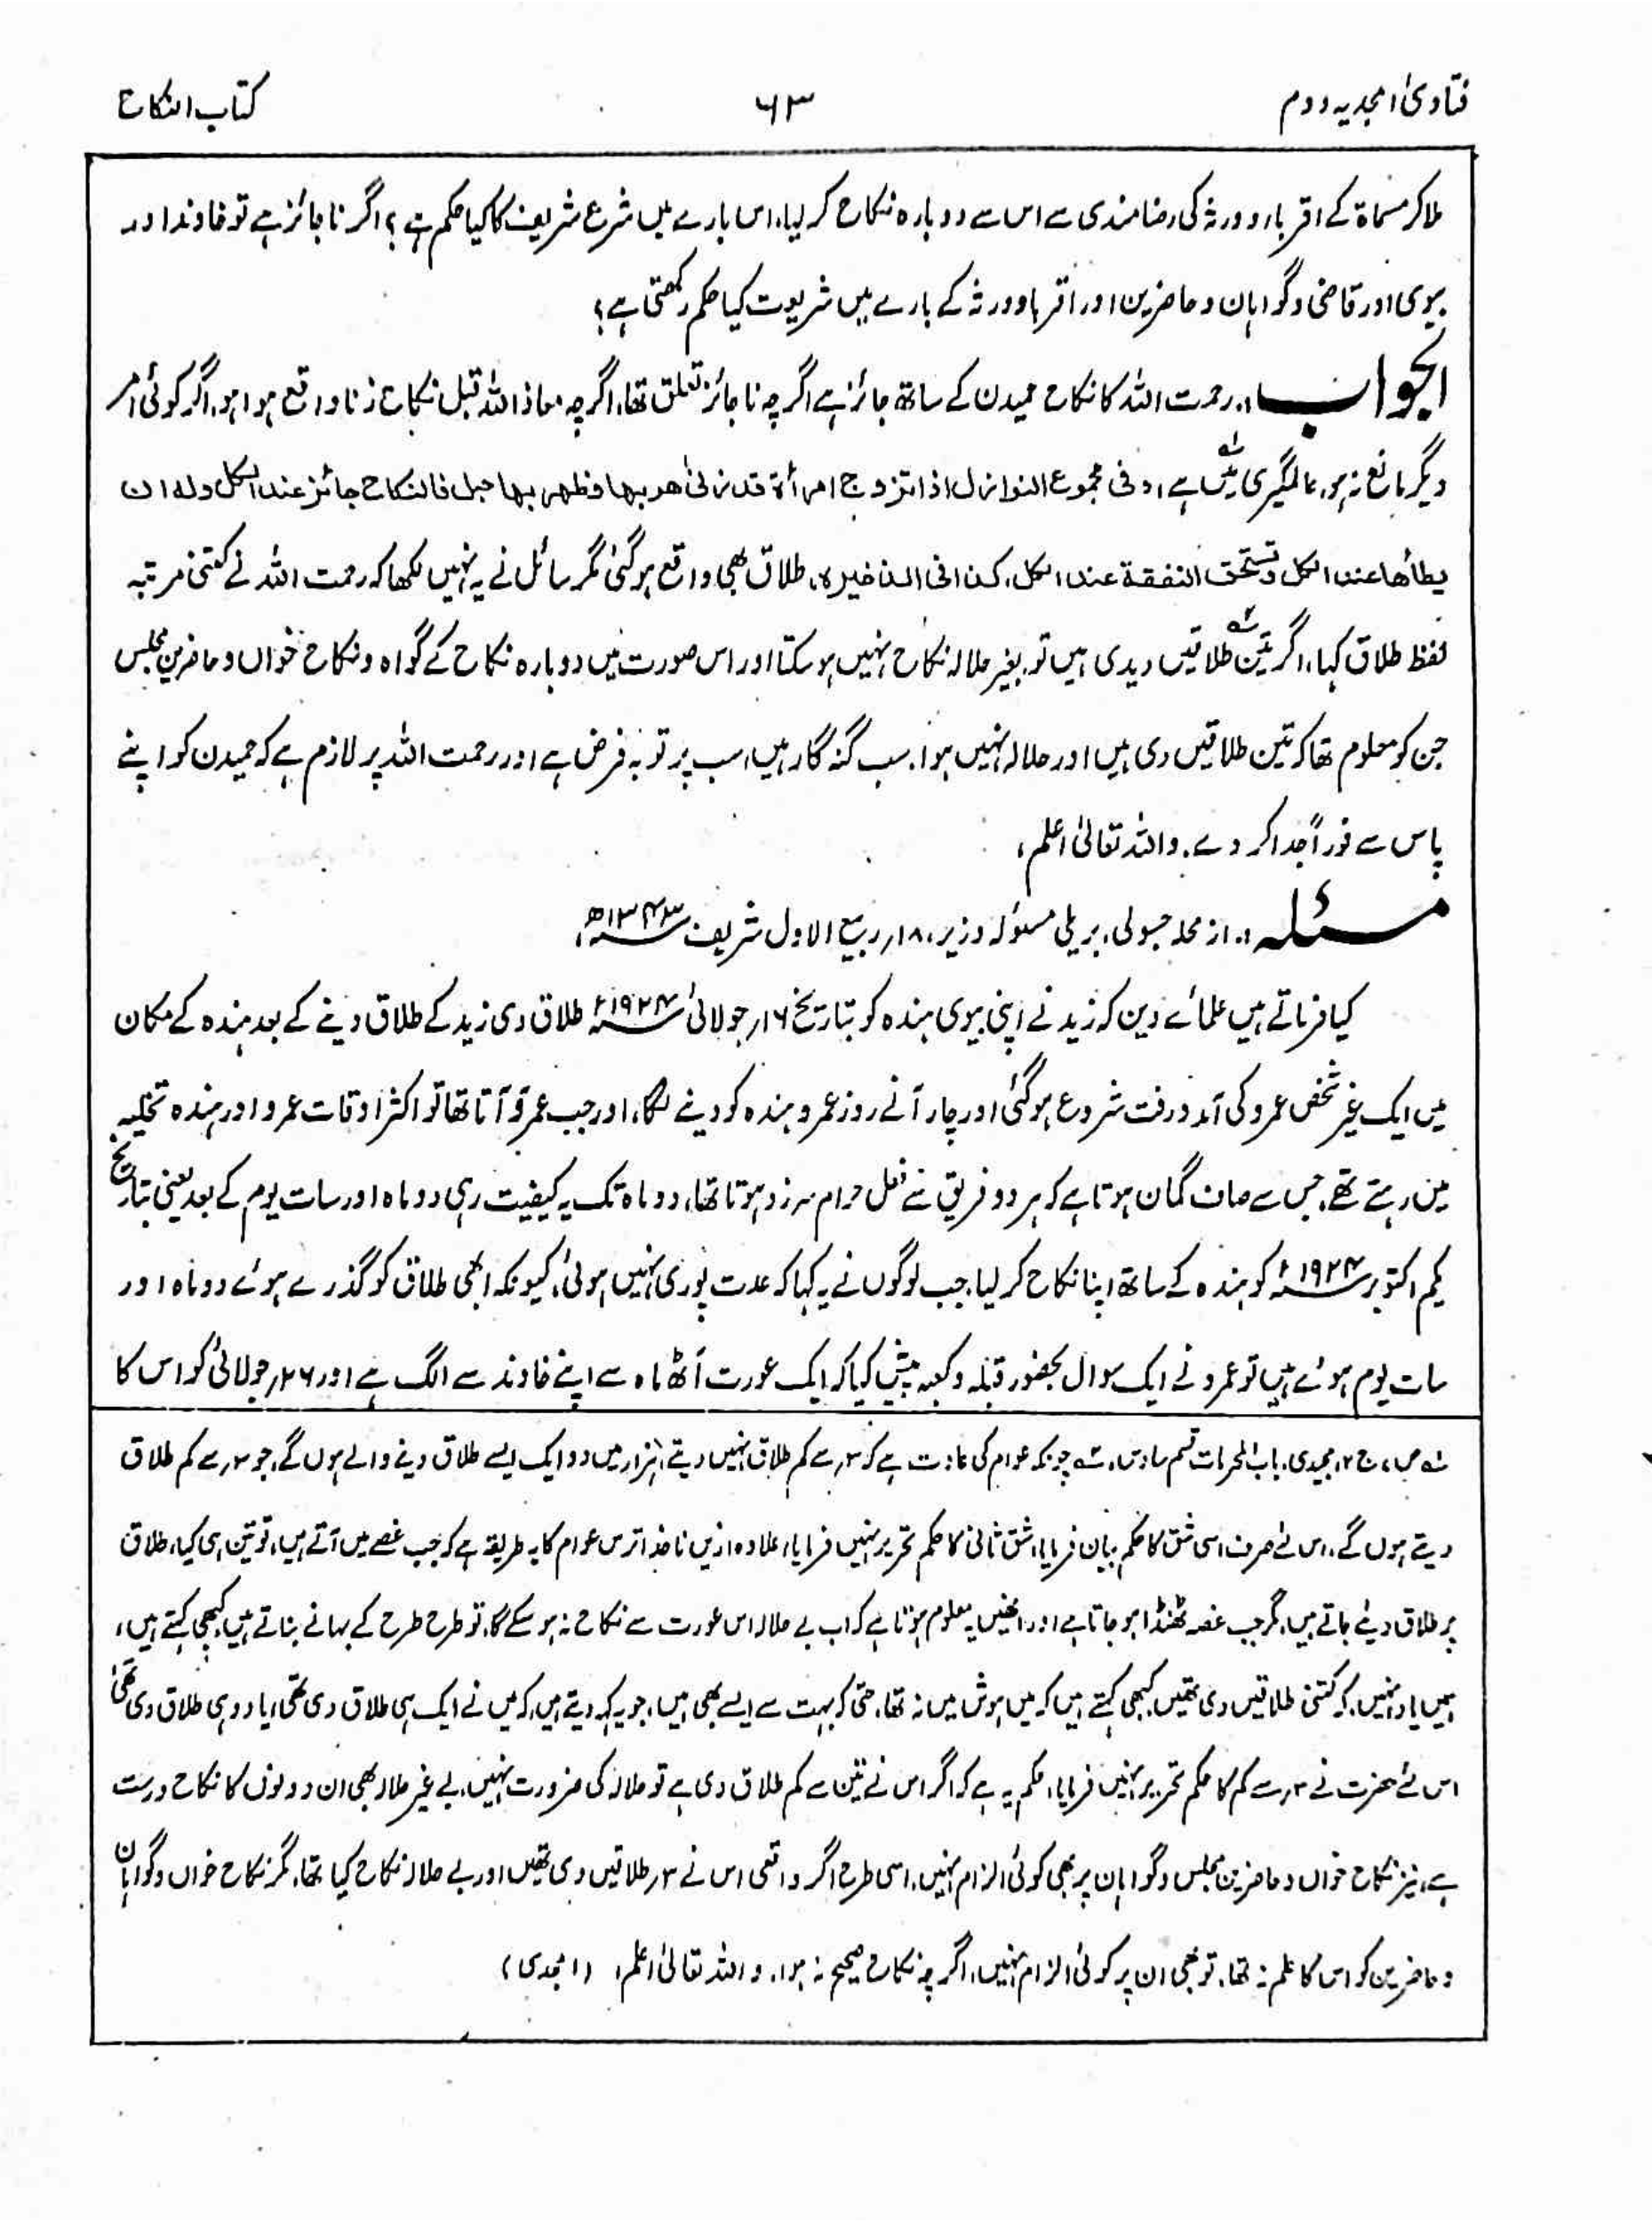 فتاویٰ امجدیہ دوم
۶۳
کتاب النکاح
ملا کر مسماۃ کے اقربا و ورثہ کی رضامندی سے اس سے دوبارہ نکاح کر لیا، اس بارے میں شرع شریف کا کیا حکم ہے؟ اگر ناجائز ہے تو خاوند اور
بیوی اور قاضی و گواہان و حاضرین اور اقربا و ورثہ کے بارے میں شریعت کیا حکم رکھتی ہے؟
الجواب :۔ رحمت اللہ کا نکاح حمیدن کے ساتھ جائز ہے اگرچہ ناجائز تعلق تھا، اگرچہ معاذ اللہ قبل نکاح زنا واقع ہوا ہو، اگر کوئی امر
دیگر مانع نہ ہو، عالمگیری میں ۱؎ ہے، و فی مجموع النوازل اذا تزوج امرأۃ قد زنیٰ ھو بھا و ظھر بھا حبل فالنکاح جائز عند الکل و لہ ان
یطأھا عند الکل و تستحق النفقۃ عند الکل، کذا فی الذخیرۃ، طلاق بھی واقع ہو گئی مگر سائل نے یہ نہیں لکھا کہ رحمت اللہ نے کتنی مرتبہ
لفظ طلاق کہا، اگر تین ۲؎ طلاقیں دیدی ہیں تو بغیر حلالہ نکاح نہیں ہو سکتا اور اس صورت میں دوبارہ نکاح کے گواہ و نکاح خواں و حاضرین مجلس
جن کو معلوم تھا کہ تین طلاقیں دی ہیں اور حلالہ نہیں ہوا، سب گنہگار ہیں، سب پر توبہ فرض ہے اور رحمت اللہ پر لازم ہے کہ حمیدن کو اپنے
پاس سے فوراً جدا کر دے، واللہ تعالیٰ اعلم،
مسئلہ :۔ از محلہ جسولی، بریلی مسئولہ وزیر، ۱۸؍ ربیع الاول شریف ۱۳۴۳ھ،
کیا فرماتے ہیں علمائے دین کہ زید نے اپنی بیوی ہندہ کو بتاریخ ۱۶؍ جولائی ۱۹۲۴ء طلاق دی زید کے طلاق دینے کے بعد ہندہ کے مکان
میں ایک غیر شخص عمرو کی آمد و رفت شروع ہو گئی اور چار آنے روز عمرو ہندہ کو دینے لگا، اور جب عمرو آتا تھا تو اکثر اوقات عمرو اور ہندہ تخلیہ
میں رہتے تھے، جس سے صاف گمان ہوتا ہے کہ ہر دو فریق سے فعل حرام سرزد ہوتا تھا، دو ماہ تک یہ کیفیت رہی دو ماہ اور سات یوم کے بعد یعنی بتاریخ
یکم اکتوبر ۱۹۲۴ء کو ہندہ کے ساتھ اپنا نکاح کر لیا، جب لوگوں نے یہ کہا کہ عدت پوری نہیں ہوئی، کیونکہ ابھی طلاق کو گذرے ہوئے دو ماہ اور
سات یوم ہوئے ہیں تو عمرو نے ایک سوال بحضور قبلہ و کعبہ پیش کیا کہ ایک عورت آٹھ ماہ سے اپنے خاوند سے الگ ہے اور ۲۶؍ جولائی کو اس کا
۱؎ ص۷، ج۲، مجیدی، باب المحرمات قسم سادس، ۲؎ چونکہ عوام کی عادت ہے کہ ۳؍ سے کم طلاق نہیں دیتے، ہزار میں دو ایک ایسے طلاق دینے والے ہوں گے، جو ۳؍ سے کم طلاق
دیتے ہوں گے، اس لئے صرف اسی شق کا حکم بیان فرمایا، شق ثانی کا حکم تحریر نہیں فرمایا، علاوہ ازیں ناخدا ترس عوام کا یہ طریقہ ہے کہ جب غصے میں آتے ہیں، تو تین ہی کیا، طلاق
پر طلاق دیئے جاتے ہیں، مگر جب غصہ ٹھنڈا ہو جاتا ہے اور انھیں یہ معلوم ہوتا ہے کہ اب بے حلالہ اس عورت سے نکاح نہ ہو سکے گا، تو طرح طرح کے بہانے بناتے ہیں، کبھی کہتے ہیں،
ہمیں یاد نہیں، کہ کتنی طلاقیں دی تھیں، کبھی کہتے ہیں کہ میں ہوش میں نہ تھا، حتی کہ بہت سے ایسے بھی ہیں، جو یہ کہہ دیتے ہیں، کہ میں نے ایک ہی طلاق دی تھی، یا دو ہی طلاق دی تھی،
اس لئے حضرت نے ۳؍ سے کم کا حکم تحریر نہیں فرمایا، حکم یہ ہے کہ اگر اس نے تین سے کم طلاق دی ہے تو حلالہ کی ضرورت نہیں، بے غیر حلالہ بھی ان دونوں کا نکاح درست
ہے، نیز نکاح خواں و حاضرین مجلس و گواہان پر بھی کوئی الزام نہیں، اسی طرح اگر واقعی اس نے ۳؍ طلاقیں دی تھیں اور بے حلالہ نکاح کیا تھا، مگر نکاح خواں و گواہان
و حاضرین کو اس کا علم نہ تھا، تو بھی ان پر کوئی الزام نہیں، اگرچہ نکاح صحیح نہ ہوا، واللہ تعالیٰ اعلم، (امجدی)